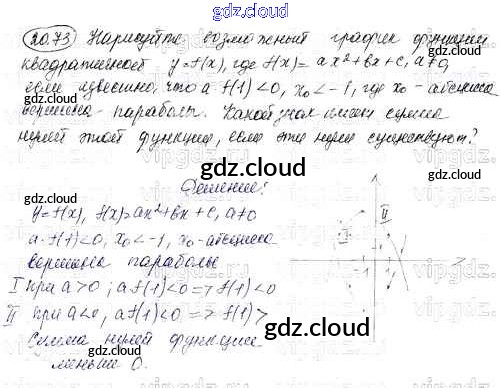 gdz.cloud
20.73 Нарисуйте возможный график функции
gdz.cloud
квадратичной y=f(x), где f(x)= ax²+bx+c, a≠0
если известно, что a f(1)<0, x₀<-1, где x₀-абсцисса
gdz.cloud
вершины параболы. Какой знак имеет сумма
нулей этой функции, если эти нули существуют?
gdz.cloud
Решение:
gdz.cloud
y=f(x), f(x)=ax²+bx+c, a≠0
a·f(1)<0, x₀<-1, x₀-абсцисса
вершины параболы
I при a>0; af(1)<0=>f(1)<0
II при a<0, af(1)<0 => f(1)>
Сумма нулей функции
меньше 0.
gdz.cloud
I
II
-1
1
gdz.cloud
gdz.cloud
gdz.cloud